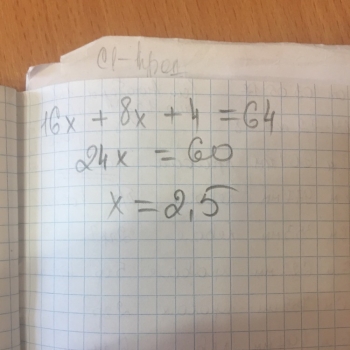 16x + 8x + 4 = 64
24x = 60
x = 2,5